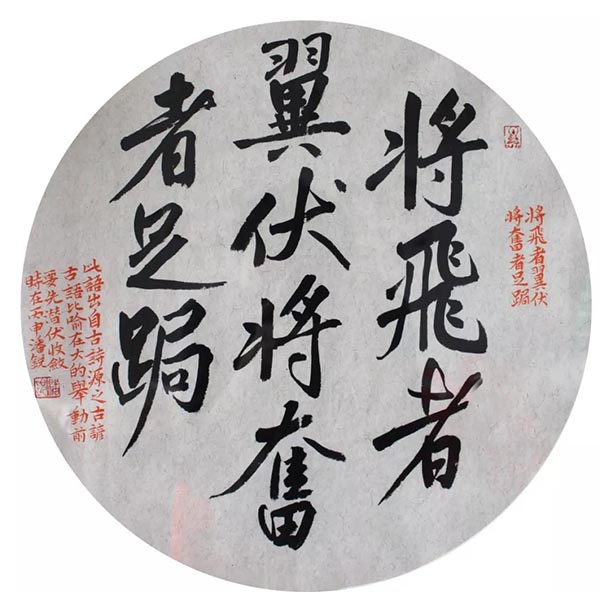 将飛者
翼伏将奮
者足跼
将飛者翼伏
将奮者足跼
此語出自古詩源之古諺
古語比喻在大的舉動前
要先潜伏收斂
時在丙申潘銳